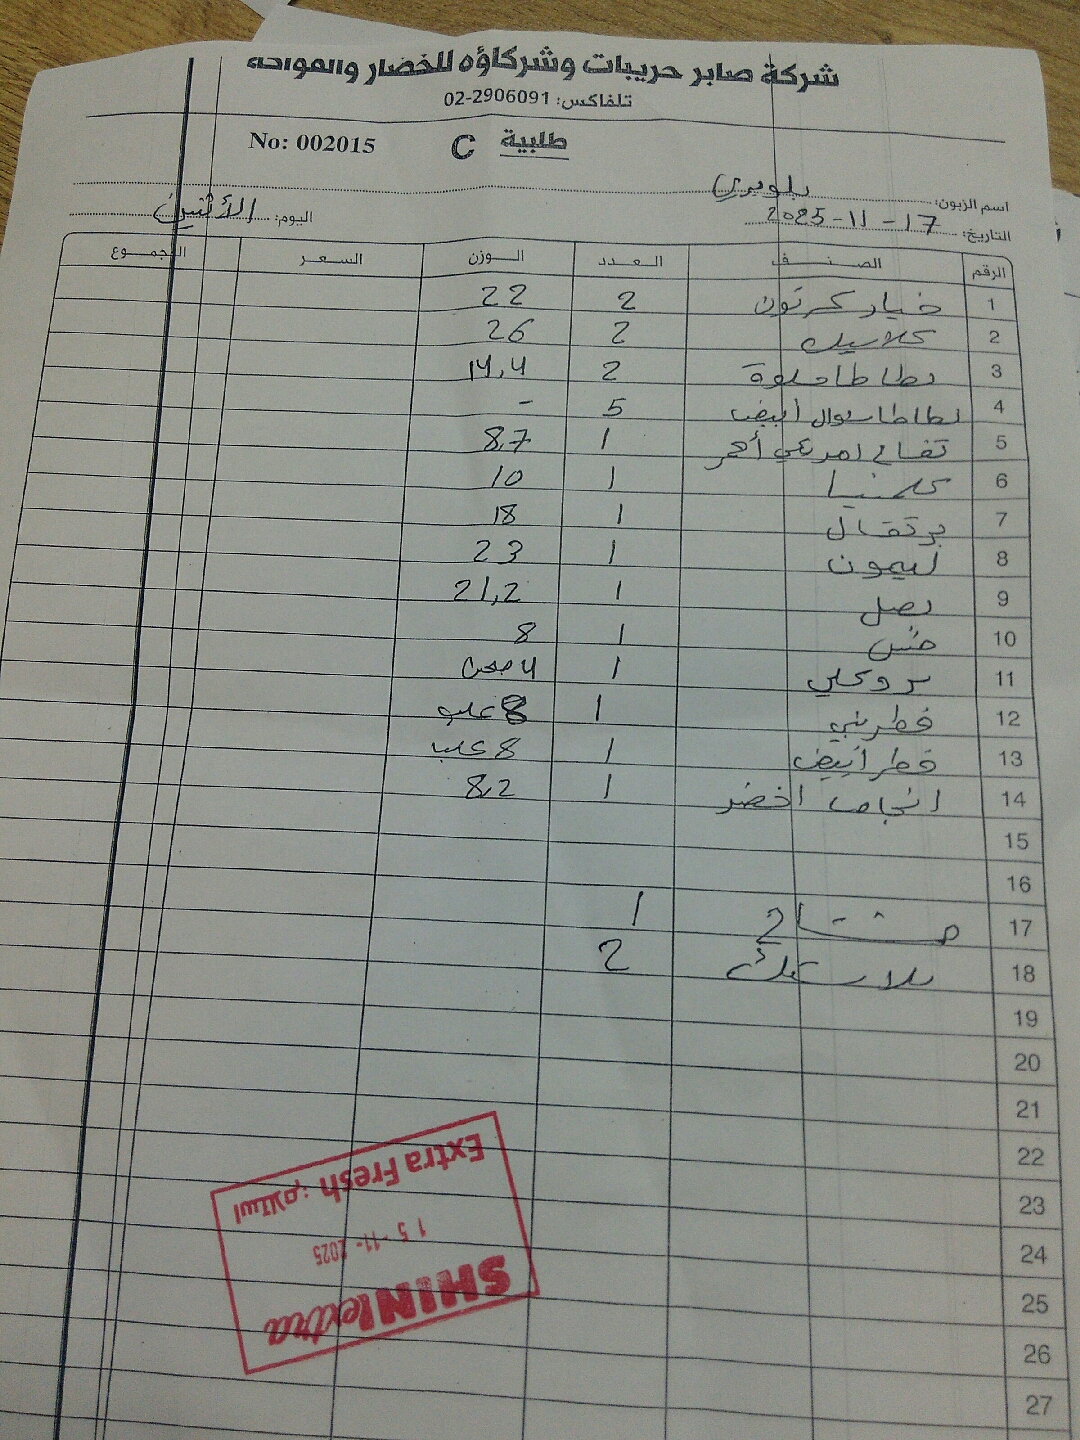 شركة صابر حريبات وشركاؤه للخضار والفواكه
تلفاكس: 02-2906091
No: 002015 C طلبية
اسم الزبون: بلوبري
التاريخ: 17-11-2025 اليوم: الأثنين
الرقم الصنف العدد الوزن السعر المجموع
1 خيار كرتون 2 22
2 كلاسيك 2 26
3 بطاطا حلوة 2 14,4
4 بطاطا شوال أبيض 5 -
5 تفاح أمريكي أحمر 1 8,7
6 كلمنتينا 1 10
7 برتقال 1 18
8 ليمون 1 23
9 بصل 1 21,2
10 خس 1 8
11 بروكلي 1 4 صحن
12 فطر بني 1 8 علب
13 فطر أبيض 1 8 علب
14 انجاص اخضر 1 8,2
15
16
17 مشتاح 1
18 بلاستيك 2
19
20
21
22
23
24
25
26
27
SHINI extra
15-11-2025
استلام: Extra Fresh